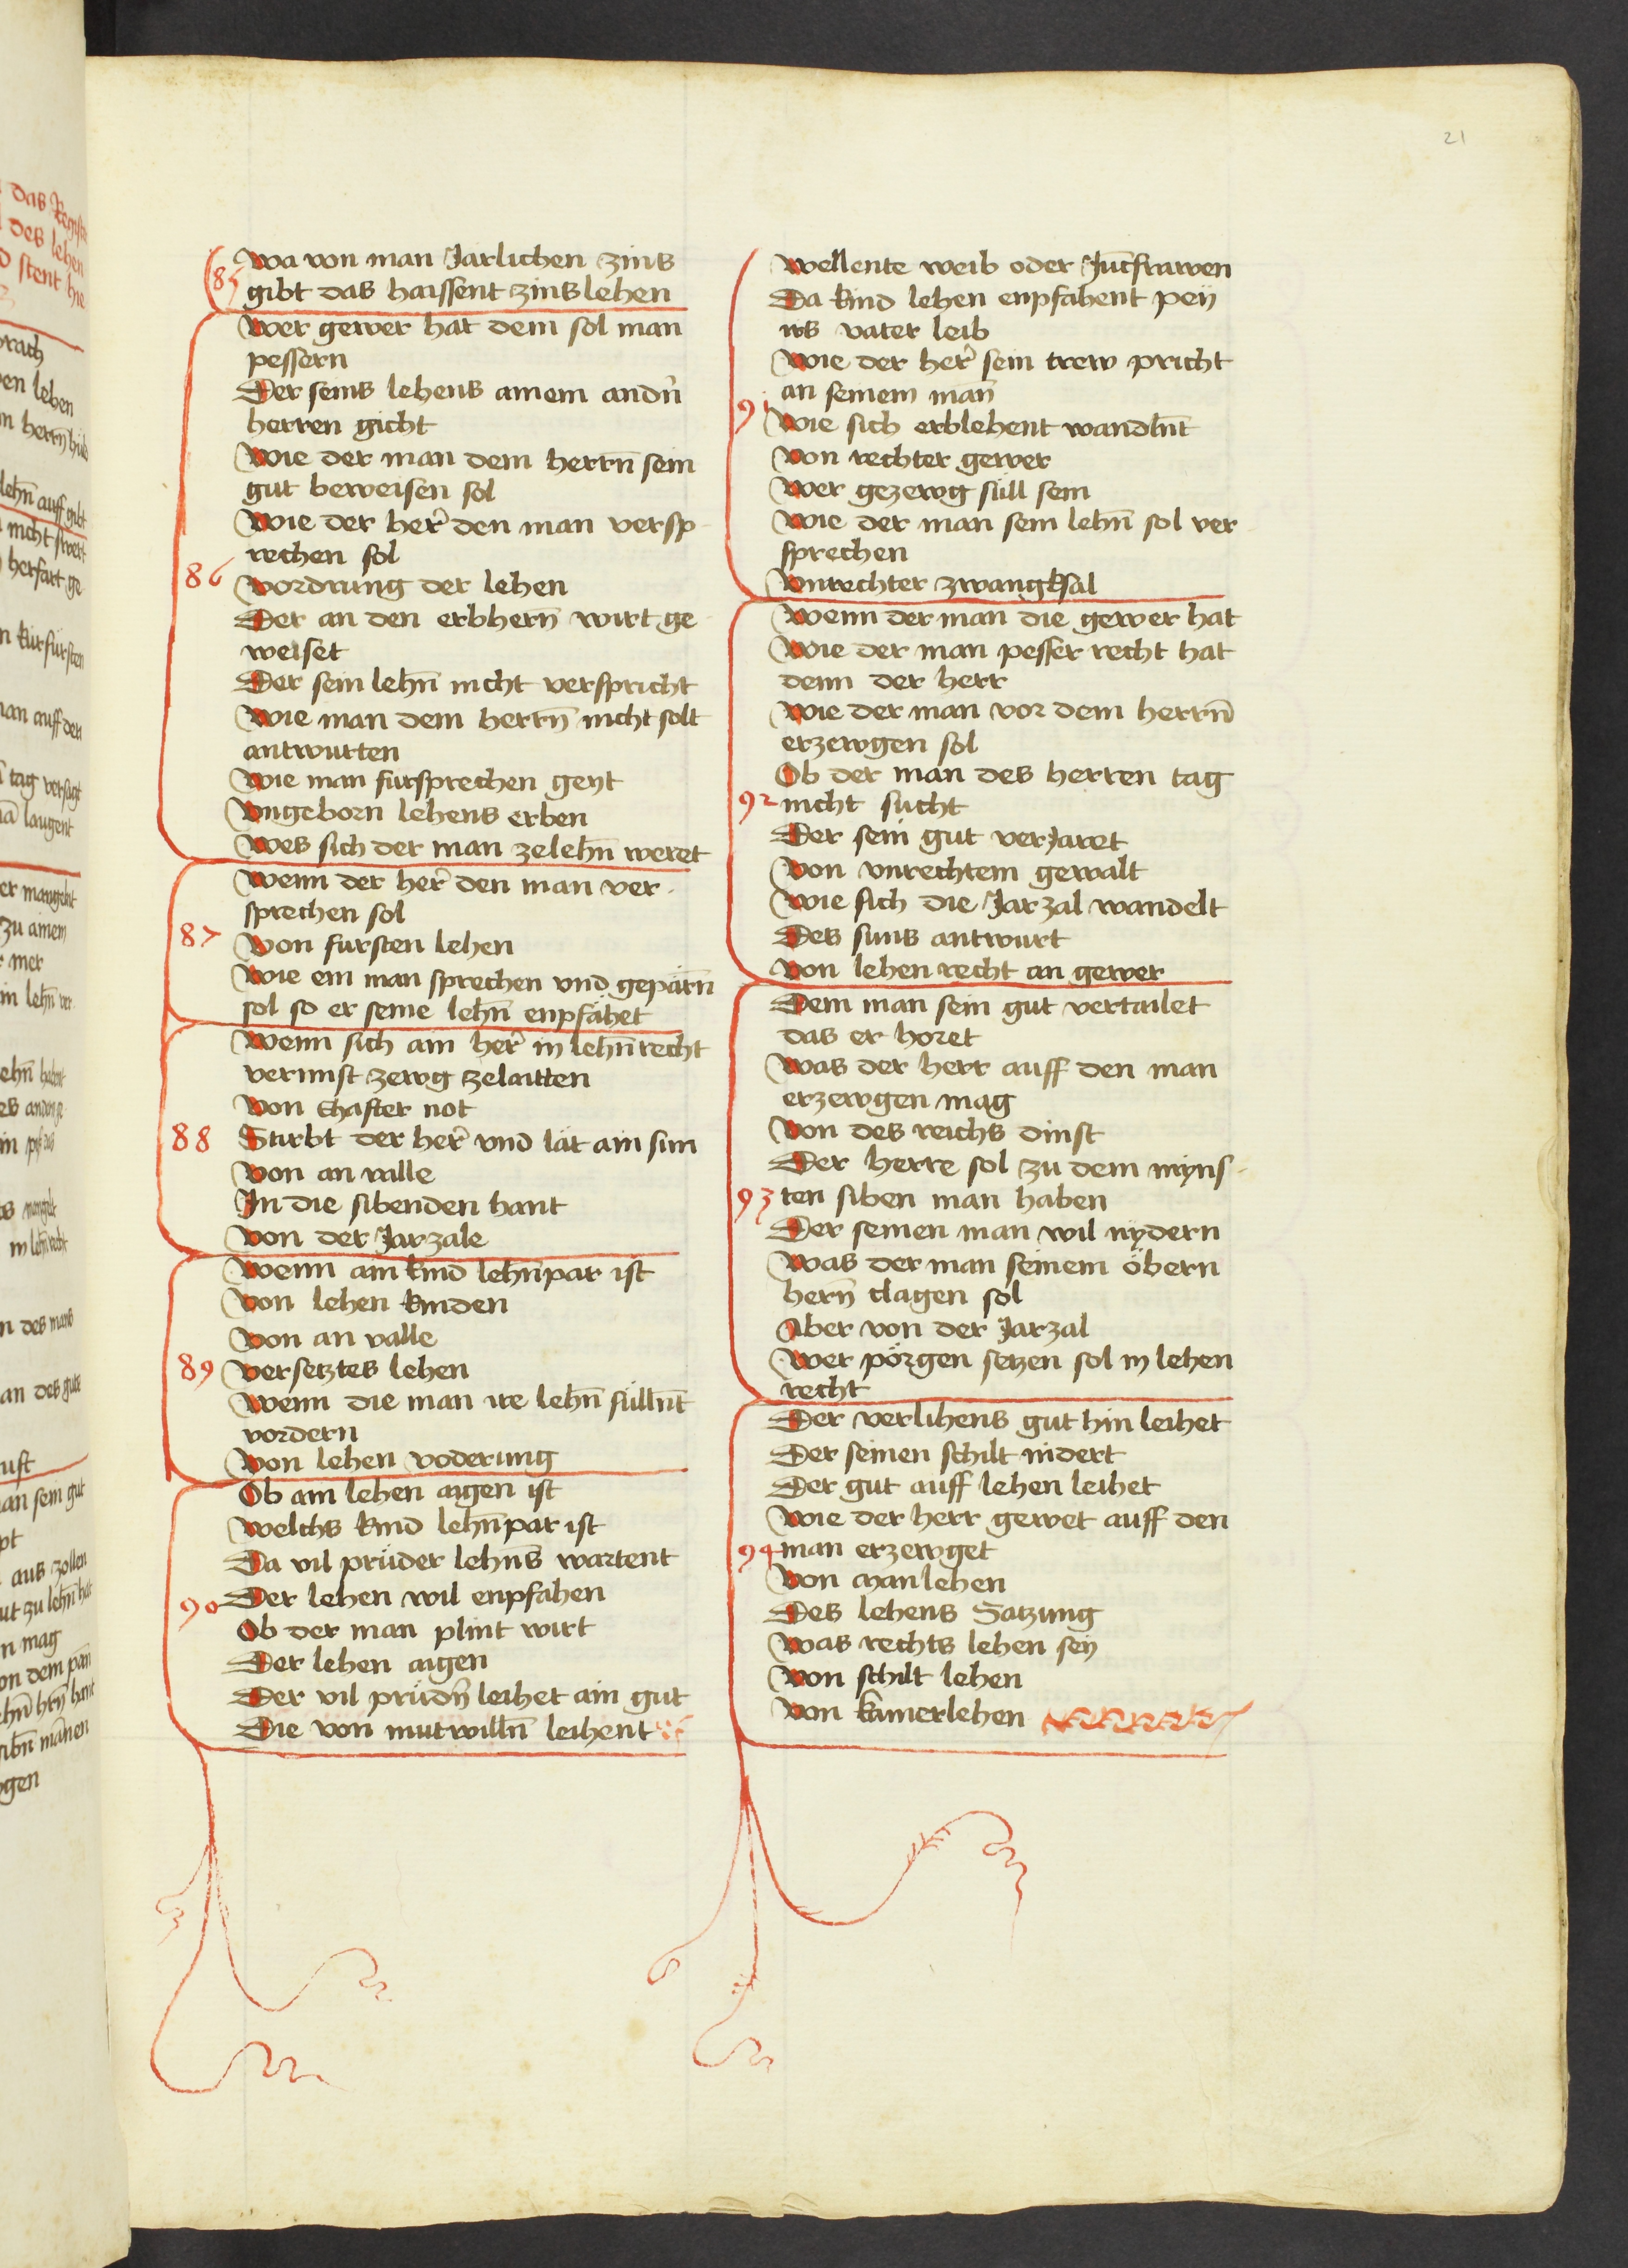 21
Wa von man Jarlichen zins
85 gibt das haissent zinslehen
Wer gewer hat dem sol man
pessern
Der seins lehens ainem andn̄
herren gicht
Wie der man dem herrn̄ sein
gut beweisen sol
Wie der her̄ den man versp
rechen sol
86 Vordrung der lehen
Der an den erbhern̄ wirt ge
weiset
Der sein lehn̄ nicht verspricht
Wie man dem herrn̄ nicht solt
antwurten
Wie man fursprechen geyt
Vngeborn lehens erben
Wes sich der man zelehn̄ weret
Wenn der her̄ den man ver
sprechen sol
87 Von fursten lehen
Wie ein man sprechen vnd geparn̄
sol so er seine lehn̄ enpfähet
Wenn sich ain her̄ in lehn̄recht
vernnst zewg zelaitten
Von ehafter not
88 Stirbt der her̄ vnd lät ain sun
Von an valle
In die sibenden hant
Von der Jarzale
Wenn ain kind lehn̄par ist
Von lehen kinden
Von an valle
89 Versetztes lehen
Wenn die man ire lehn̄ sülln̄t
vordern
Von lehen voderung
Ob ain lehen aigen ist
Welchs kind lehn̄par ist
Da vil prüder lehn̄s wartent
90 Der lehen wil enpfahen
Ob der man plint wirt
Der lehen aigen
Der vil prüdn̄ leihet ain gut
Die von mutwilln̄ leihent
Wellente weib oder Jūcfrawen
Da kind lehen enpfahent peÿ
irs vater leib
Wie der her̄ sein trew pricht
an seinem man̄
91 Wie sich erblehent wandln̄t
Von rechter gewer
Wer gezewg süll sein
Wie der man sein lehn̄ sol ver
sprechen
Vnrechter zwangksal
Wenn der man die gewer hat
Wie der man pesser recht hat
denn der herr
Wie der man vor dem herrn̄
erzewgen sol
Ob der man des herren tag
92 nicht sucht
Der sein gut verJaret
Von vnrechtem gewalt
Wie sich die Jarzal wandelt
Des suns antwurt
Von lehen recht an gewer
Dem man sein gut vertailet
das er horet
Was der herr auff den man
erzewgen mag
Von des reichs dinst
Der herre sol zu dem myns
93 ten siben man haben
Der seinen man wil nydern
Was der man seinem öbern
hern̄ clagen sol
Aber von der Jarzal
Wer pörgen setzen sol in lehen
recht
Der verlihens gut hin leihet
Der seinen schilt nidert
Der gut auff lehen leihet
Wie der herr gewet auff den
94 man erzewget
Von manlehen
Des lehens Satzung
Was rechts lehen seÿ
Von schilt lehen
Von kam̄erlehen